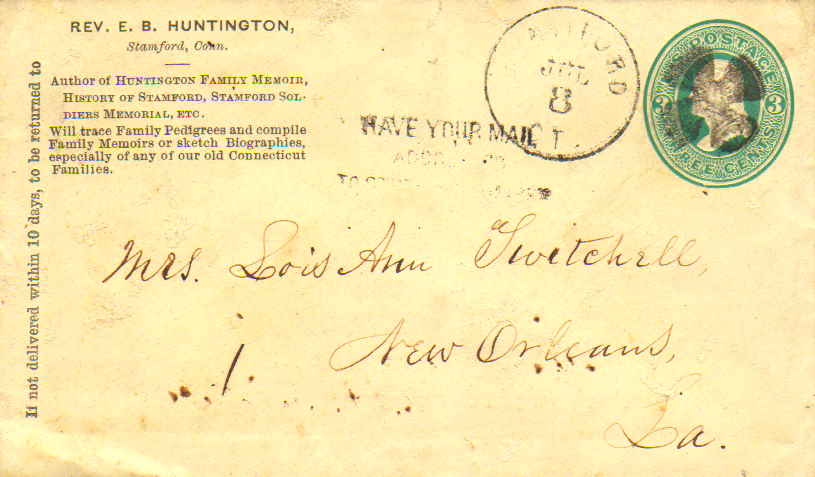 REV. E. B. HUNTINGTON,
Stamford, Conn.
Author of HUNTINGTON FAMILY MEMOIR,
HISTORY OF STAMFORD, STAMFORD SOL-
DIERS MEMORIAL, ETC.
Will trace Family Pedigrees and compile
Family Memoirs or sketch Biographies,
especially of any of our old Connecticut
Families.
If not delivered within 10 days, to be returned to
JUL
8
HAVE YOUR MAIL
TO
POSTAGE
3 3
THREE CENTS
Mrs. Lois Ann Twitchell,
New Orleans,
La.